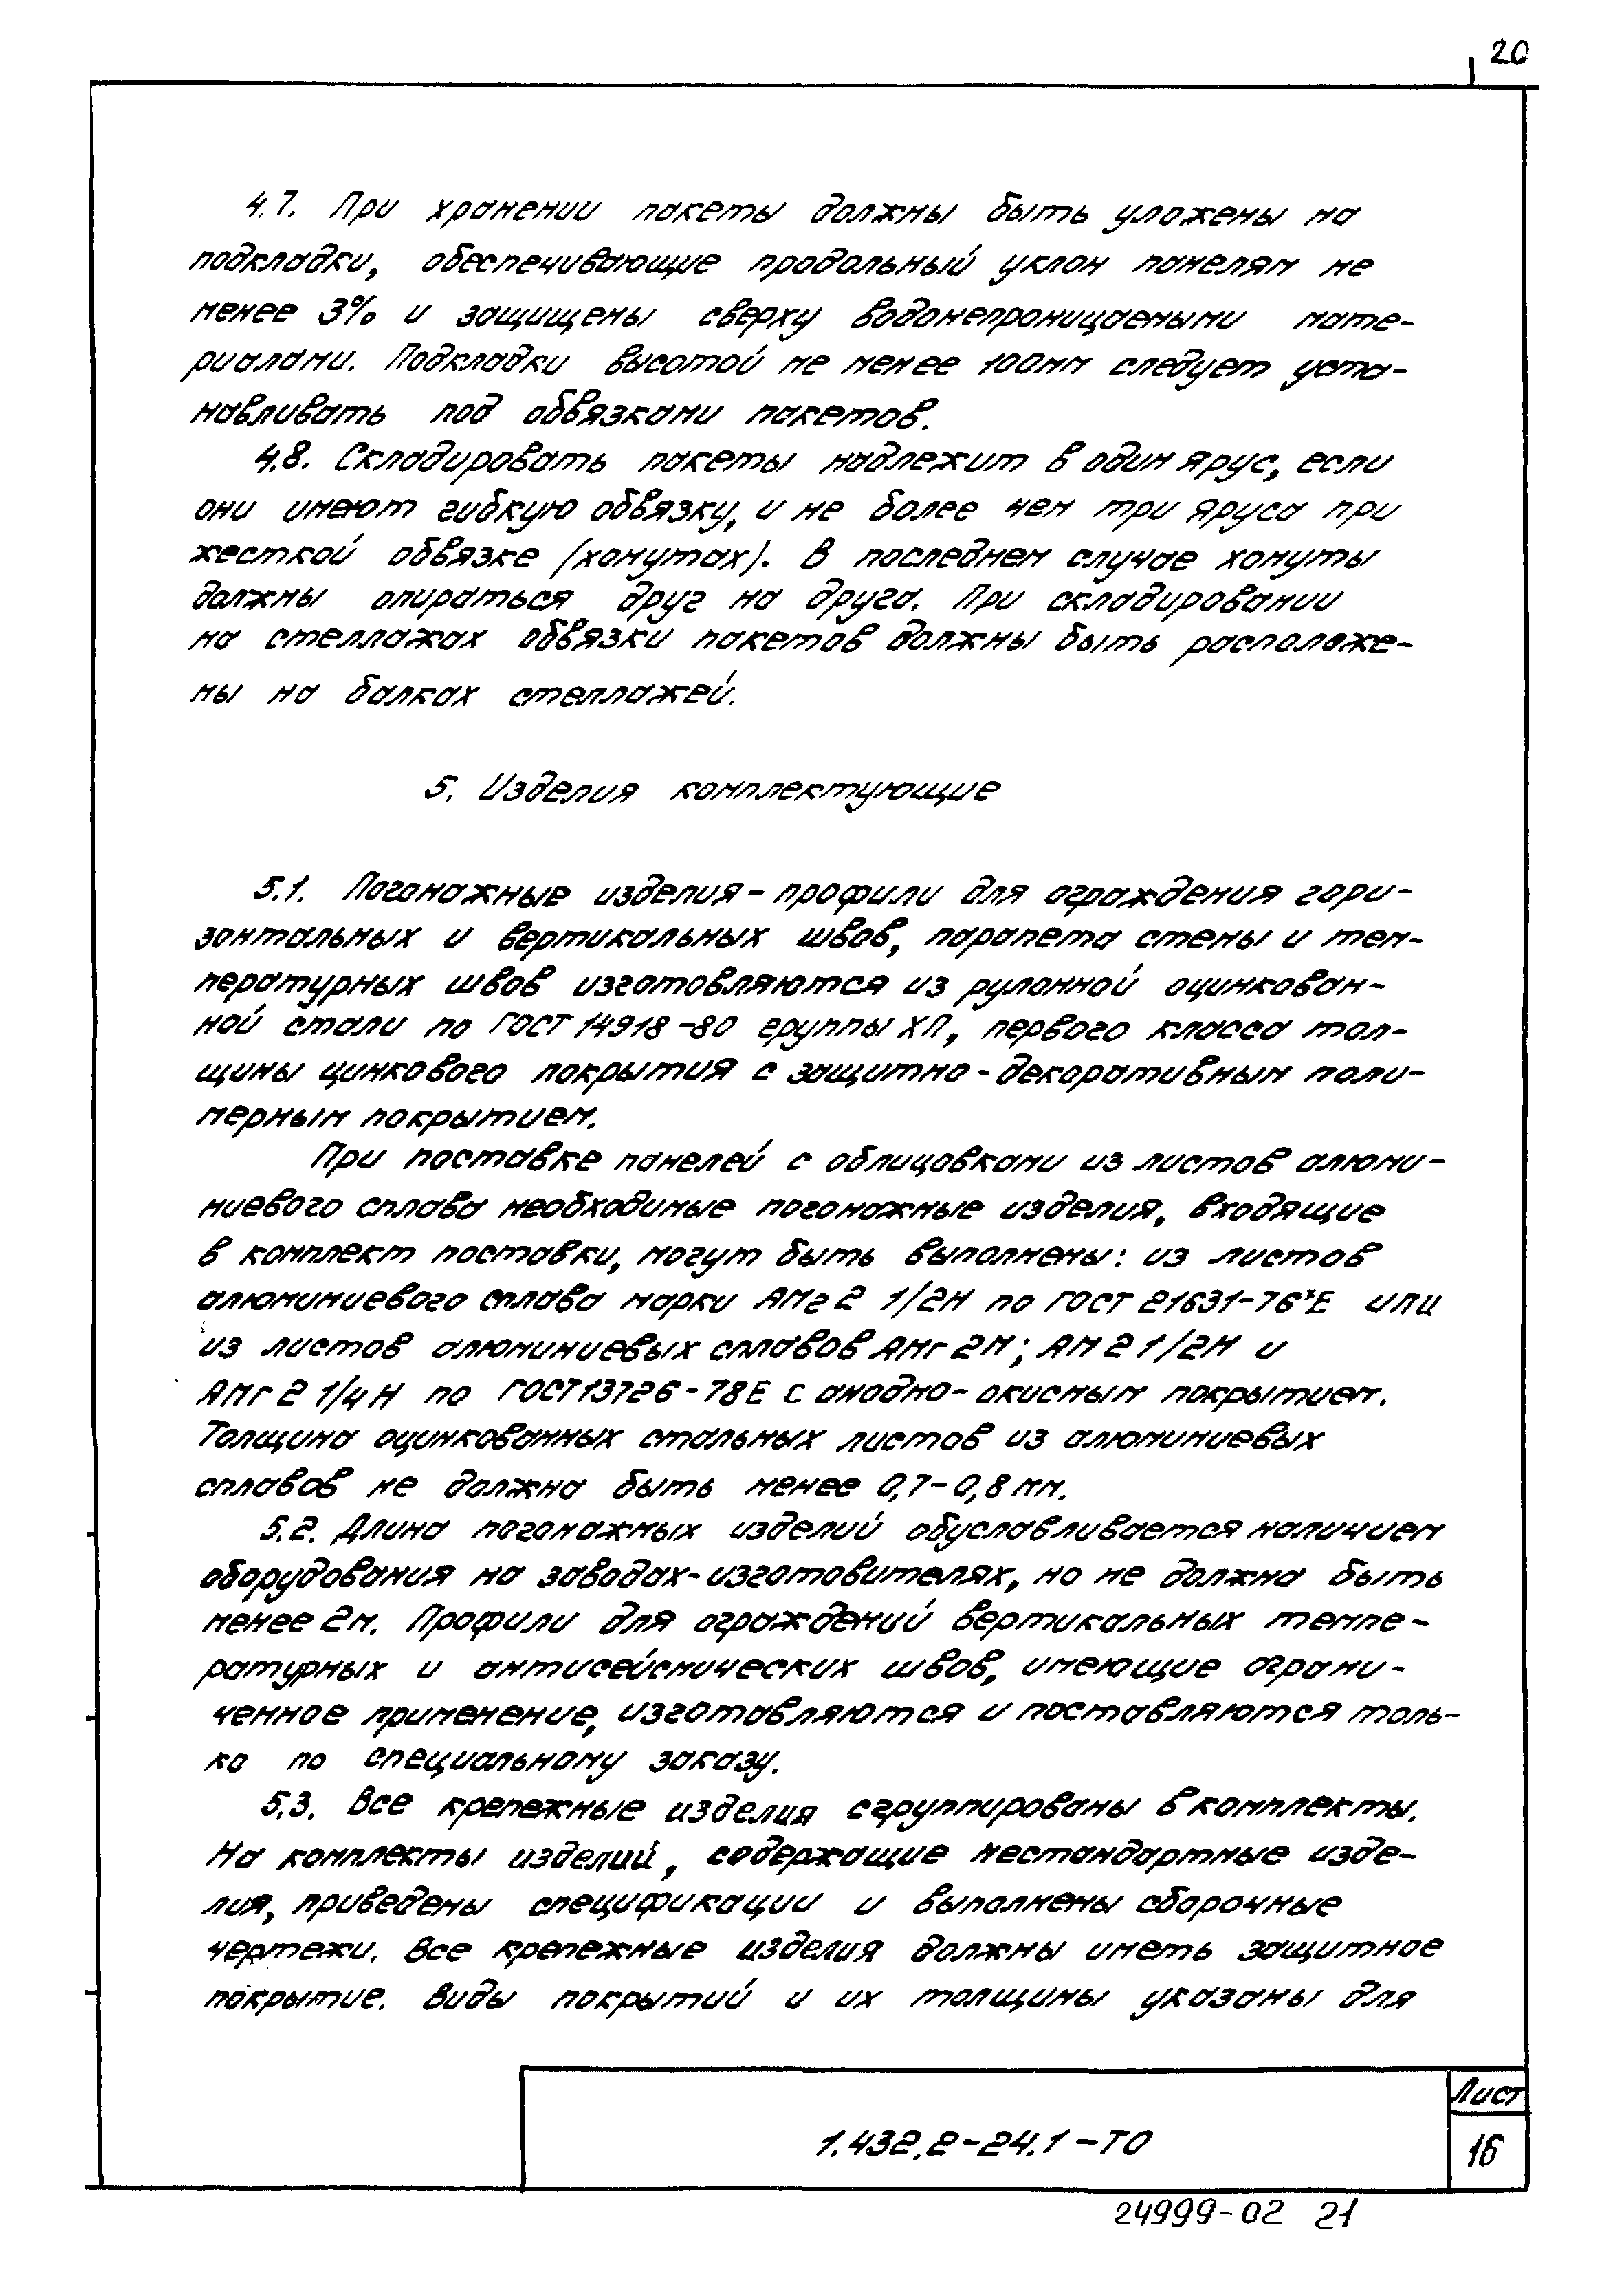 20
4.7. При хранении пакеты должны быть уложены на
подкладки, обеспечивающие продольный уклон панелям не
менее 3% и защищены сверху водонепроницаемыми мате-
риалами. Подкладки высотой не менее 100мм следует уста-
навливать под обвязками пакетов.
4.8. Складировать пакеты надлежит в один ярус, если
они имеют гибкую обвязку, и не более чем три яруса при
жесткой обвязке (хомутах). В последнем случае хомуты
должны опираться друг на друга. При складировании
на стеллажах обвязки пакетов должны быть расположе-
ны на балках стеллажей.
5. Изделия комплектующие
5.1. Погонажные изделия - профили для ограждения гори-
зонтальных и вертикальных швов, парапета стены и тем-
пературных швов изготовляются из рулонной оцинкован-
ной стали по ГОСТ 14918-80 группы ХП, первого класса тол-
щины цинкового покрытия с защитно-декоративным поли-
мерным покрытием.
При поставке панелей с облицовками из листов алюми-
ниевого сплава необходимые погонажные изделия, входящие
в комплект поставки, могут быть выполнены: из листов
алюминиевого сплава марки АМг2 1/2Н по ГОСТ 21631-76*Е или
из листов алюминиевых сплавов АМг 2М; АМ 2 1/2Н и
АМг 2 1/4Н по ГОСТ 13726-78Е с анодно-окисным покрытием.
Толщина оцинкованных стальных листов из алюминиевых
сплавов не должна быть менее 0,7-0,8 мм.
5.2. Длина погонажных изделий обуславливается наличием
оборудования на заводах-изготовителях, но не должна быть
менее 2м. Профили для ограждений вертикальных темпе-
ратурных и антисейсмических швов, имеющие ограни-
ченное применение, изготовляются и поставляются толь-
ко по специальному заказу.
5.3. Все крепежные изделия сгруппированы в комплекты.
На комплекты изделий, содержащие нестандартные изде-
лия, приведены спецификации и выполнены сборочные
чертежи. Все крепежные изделия должны иметь защитное
покрытие. Виды покрытий и их толщины указаны для
1.432.2-24.1-ТО
Лист
16
24999-02 21